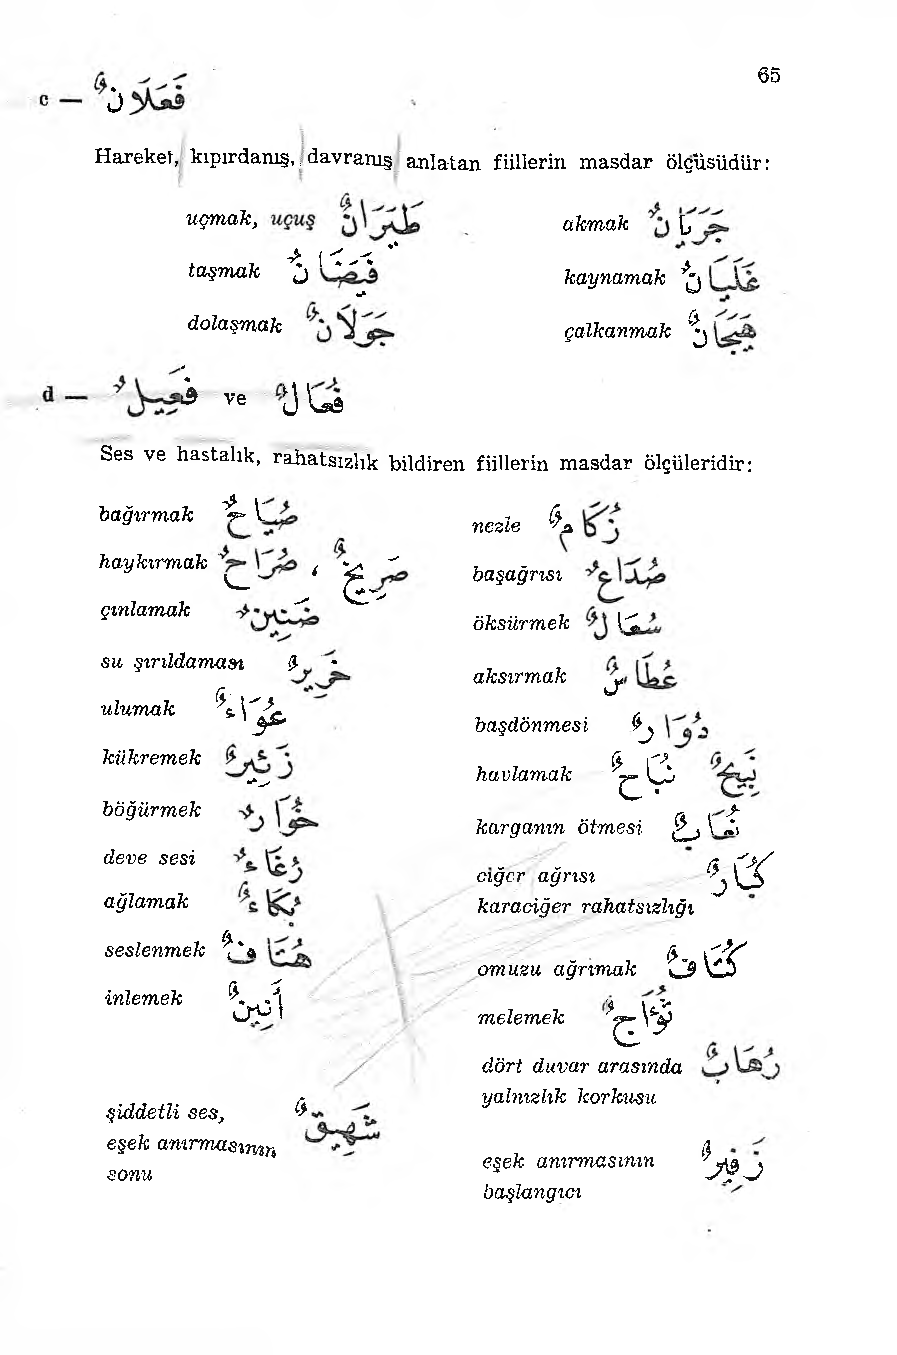 65
c — فَعَلَانٌ
Hareket, kıpırdanış, davranış anlatan fiillerin masdar ölçüsüdür:
uçmak, uçuş طَيَرَانٌ
akmak جَرَيَانٌ
taşmak فَيَضَانٌ
kaynamak غَلَيَانٌ
dolaşmak جَوَلَانٌ
çalkanmak هَيَجَانٌ
d — فَعِيلٌ ve فُعَالٌ
Ses ve hastalık, rahatsızlık bildiren fiillerin masdar ölçüleridir:
bağırmak صُيَاحٌ
haykırmak صُرَاخٌ ، صَرِيخٌ
çınlamak طَنِينٌ
su şırıldaması خَرِيرٌ
ulumak عُوَاءٌ
kükremek زَئِيرٌ
böğürmek خُوَارٌ
deve sesi رُغَاءٌ
ağlamak بُكَاءٌ
seslenmek هُتَافٌ
inlemek أَنِينٌ
şiddetli ses, شَهِيقٌ
eşek anırmasının
sonu
nezle زُكَامٌ
başağrısı صُدَاعٌ
öksürmek سُعَالٌ
aksırmak عُطَاسٌ
başdönmesi دُوَارٌ
havlamak نُبَاحٌ نَبِيحٌ
karganın ötmesi نُعَابٌ
ciğer ağrısı كُبَادٌ
karaciğer rahatsızlığı
omuzu ağrımak كُتَافٌ
melemek ثُؤَاجٌ
dört duvar arasında رُهَابٌ
yalnızlık korkusu
eşek anırmasının زَفِيرٌ
başlangıcı